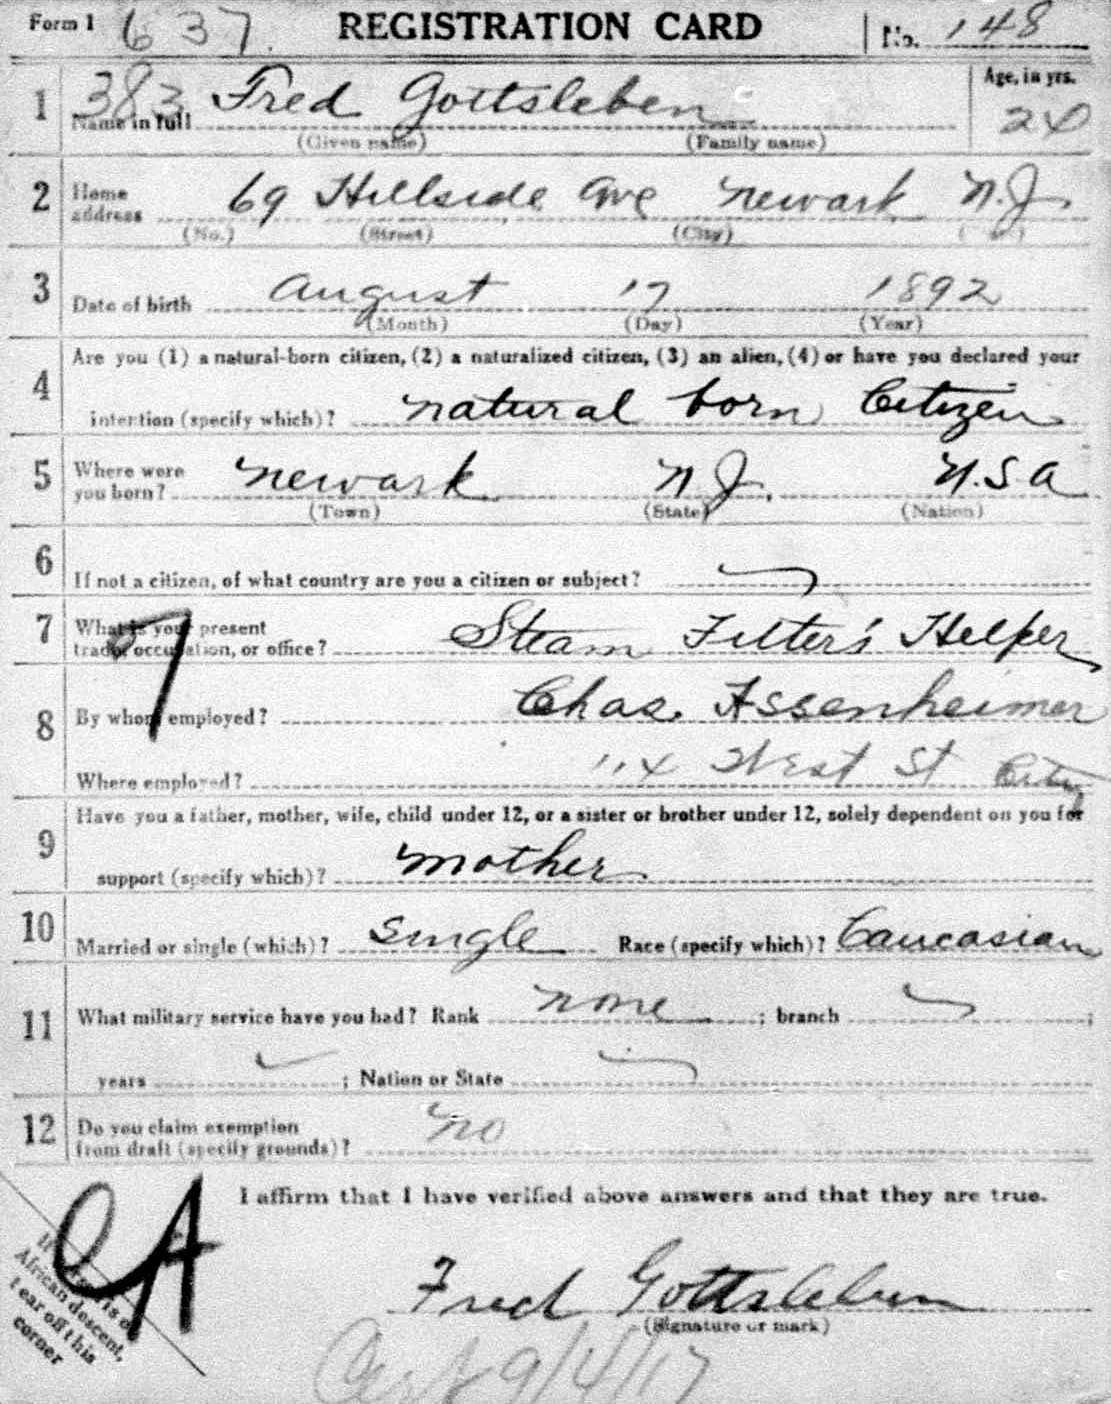 Form 1 637. REGISTRATION CARD No. 148
1 383 Fred Gottsleben Age, in yrs.
Name in full 24
(Given name) (Family name)
2 Home address 69 Hillside Ave Newark N.J.
(No.) (Street) (City)
3 Date of birth August 17 1892
(Month) (Day) (Year)
4 Are you (1) a natural-born citizen, (2) a naturalized citizen, (3) an alien, (4) or have you declared your
intention (specify which)? natural born Citizen
5 Where were you born? Newark N.J. U.S.A
(Town) (State) (Nation)
6 If not a citizen, of what country are you a citizen or subject?
7 What is your present
trade, occupation, or office? Steam Fitter's Helper
8 By whom employed? Chas. Assenheimer
Where employed? 114 West St City
9 Have you a father, mother, wife, child under 12, or a sister or brother under 12, solely dependent on you for
support (specify which)? mother
10 Married or single (which)? Single Race (specify which)? Caucasian
11 What military service have you had? Rank none ; branch ;
years ; Nation or State
12 Do you claim exemption
from draft (specify grounds)? No
I affirm that I have verified above answers and that they are true.
Fred Gottsleben
(Signature or mark)
If is of
African descent,
tear off this
corner
9/4/17